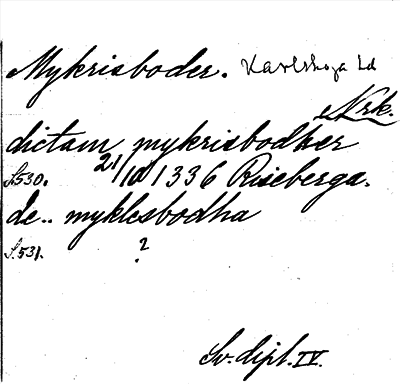 Mykrisboder. Karlskoga ld
Nrk.
dictam mykrisbodher
S.530. 21/10 1336 Riseberga.
de.. myklesbodha
S.531. ?
Sv. dipl. IV.